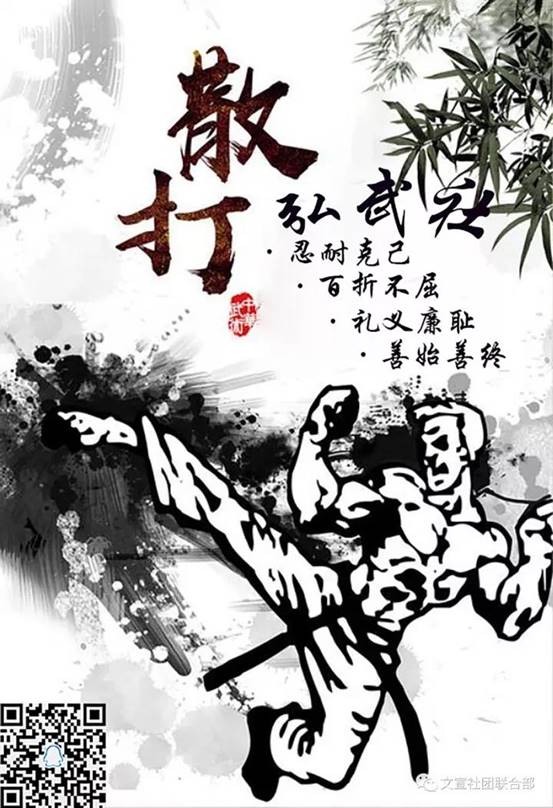 散打
弘武社
·忍耐克己
·百折不屈
·礼义廉耻
·善始善终
中华武术
文宣社团联合部